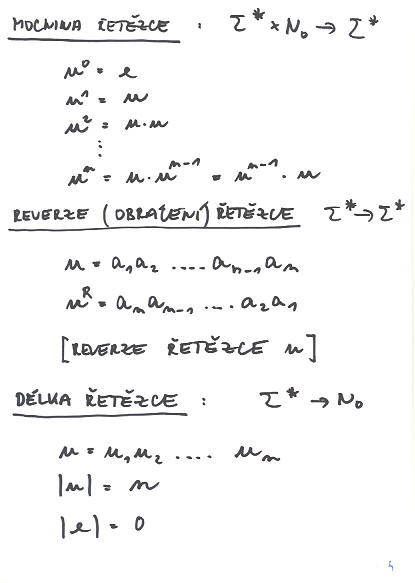 MOCNINA ŘETĚZCE : Σ* × N₀ → Σ*
u⁰ = e
u¹ = u
u² = u·u
⋮
uⁿ = u·uⁿ⁻¹ = uⁿ⁻¹·u
REVERZE (OBRÁCENÍ) ŘETĚZCE Σ* → Σ*
u = a₁a₂ .... aₙ₋₁aₙ
uᴿ = aₙaₙ₋₁ .... a₂a₁
[REVERZE ŘETĚZCE u]
DÉLKA ŘETĚZCE : Σ* → N₀
u = u₁u₂ .... uₙ
|u| = n
|e| = 0
4